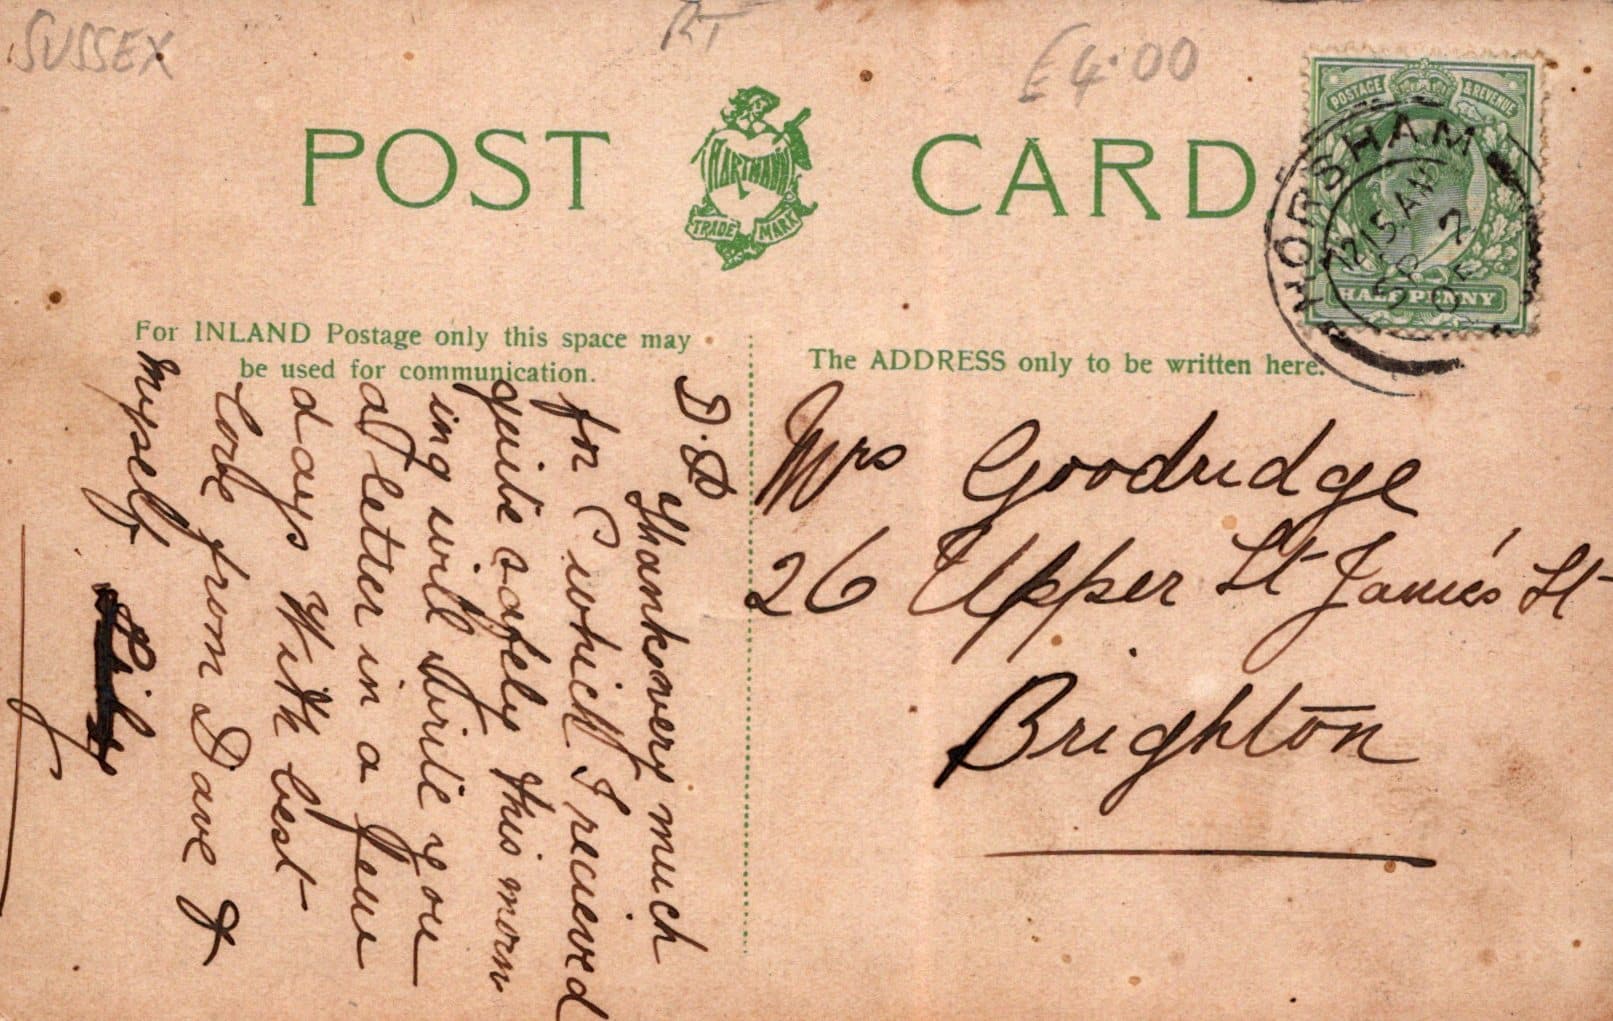 SUSSEX
RT
£4.00
POST CARD
HARTMANN
TRADE MARK
POSTAGE & REVENUE
HALF PENNY
HORSHAM
12 15 AM
SP 2
For INLAND Postage only this space may
be used for communication.
The ADDRESS only to be written here.
D.D
Thanks very much
for C which I recieved
quite safely this morn
ing will write you
a letter in a few
days With best
love from Dave &
myself
Lily
Mrs Goodridge
26 Upper St James's St
Brighton